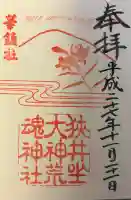 奉拝
平成二六年十一月二二日
華鎮社
狭井坐
大神荒
魂神社